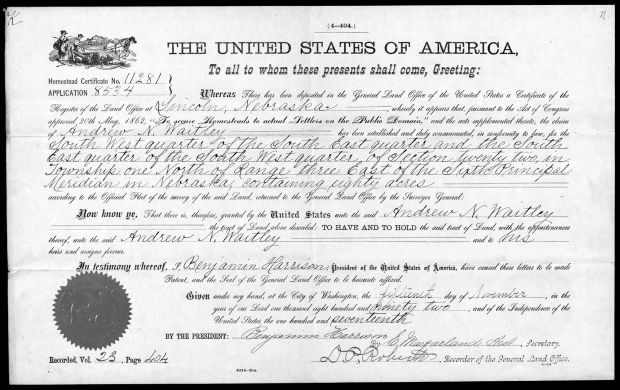 (4—404.)
THE UNITED STATES OF AMERICA,
To all to whom these presents shall come, Greeting:
Homestead Certificate No. 11281
APPLICATION 8534
Whereas There has been deposited in the General Land Office of the United States a Certificate of the
Register of the Land Office at Lincoln, Nebraska, whereby it appears that, pursuant to the Act of Congress
approved 20th May, 1862, "To secure Homesteads to actual Settlers on the Public Domain," and the acts supplemental thereto, the claim
of Andrew N. Waitley has been established and duly consummated, in conformity to law, for the
South West quarter of the South East quarter and the South
East quarter of the South West quarter of Section twenty two, in
Township one North of Range three East of the Sixth Principal
Meridian in Nebraska, containing eighty acres
according to the Official Plat of the survey of the said Land, returned to the General Land Office by the Surveyor General:
Now know ye, That there is, therefore, granted by the United States unto the said Andrew N. Waitley
the tract of Land above described: TO HAVE AND TO HOLD the said tract of Land, with the appurtenances
thereof, unto the said Andrew N. Waitley and to his
heirs and assigns forever.
In testimony whereof, I, Benjamin Harrison, President of the United States of America, have caused these letters to be made
Patent, and the Seal of the General Land Office to be hereunto affixed.
Given under my hand, at the City of Washington, the fifteenth day of November, in the
year of our Lord one thousand eight hundred and ninety two, and of the Independence of the
United States the one hundred and seventeenth
BY THE PRESIDENT: Benjamin Harrison
By Macfarland Secretary.
D. P. Roberts, Recorder of the General Land Office.
Recorded, Vol. 23, Page 404